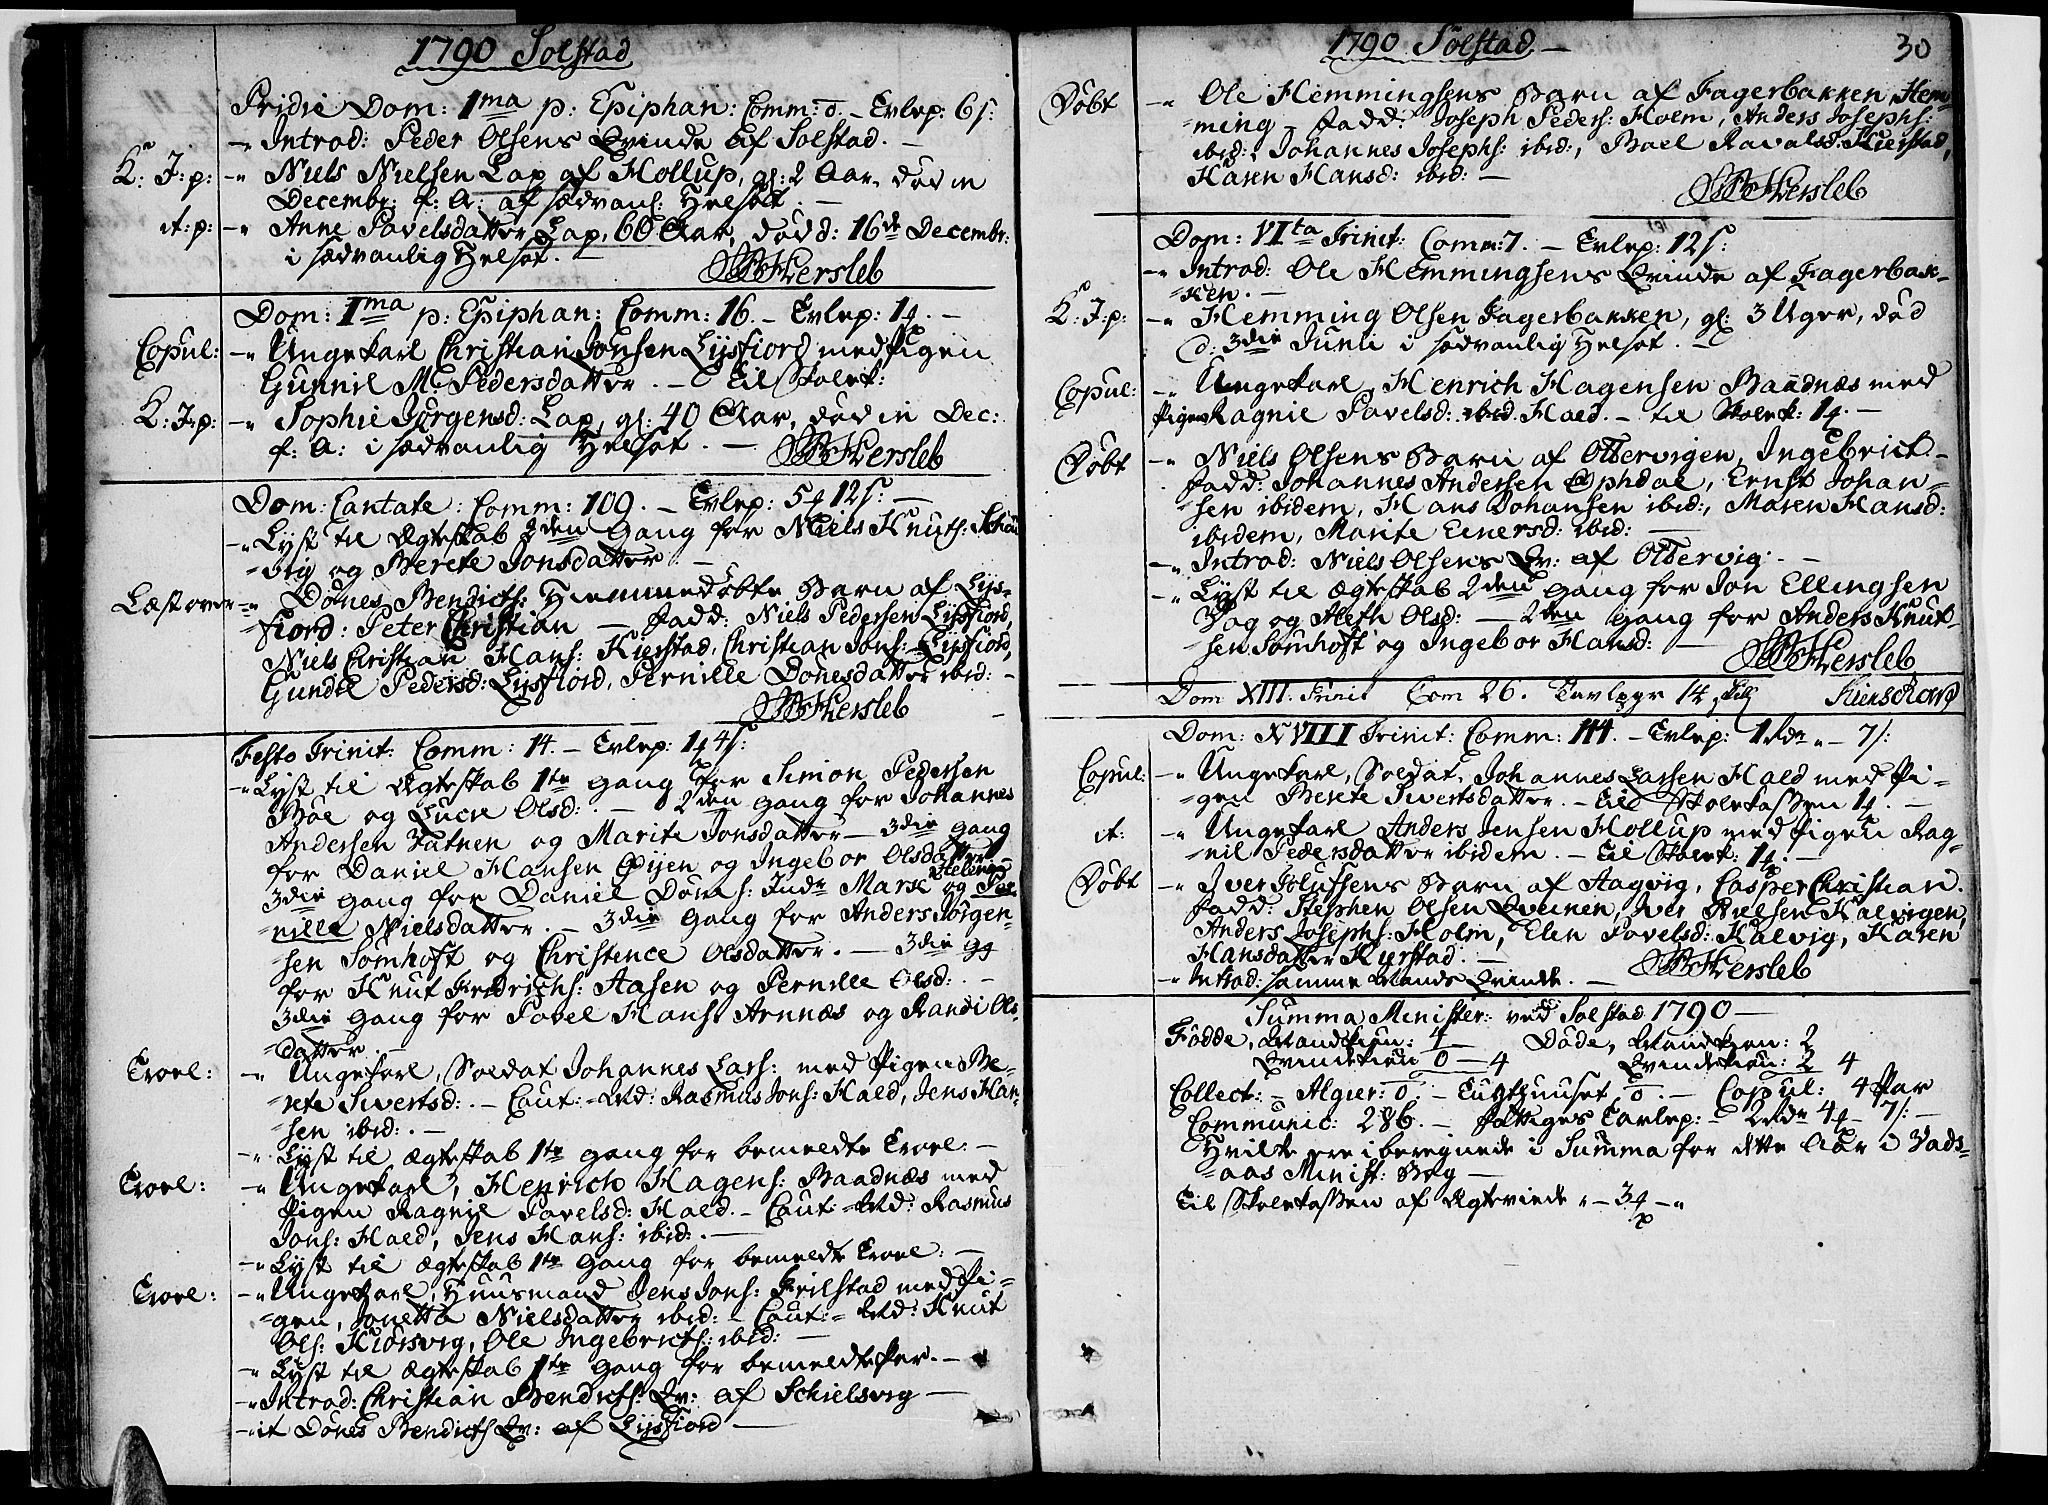 1790 Solstad
Pridie Dom: 1ma p: Epiphan: Comm: o. - Tvlep: 6 s:
-"- Introd: Peder Olsens Qvinde af Solstad. -
K: J: p: -"- Niels Nielsen Lap af Hollup, gl: 2 Aar, død in
Decembr: f: A: af sædvanl: Helsot. -
it: p: -"- Anne Pavelsdatter Lap, 60 Aar, død d: 16de Decembr:
i sædvanlig Helsot. - Hersleb
Dom: 1ma p: Epiphan: Comm: 16. - Tvlep: 1 . -
Copul: -"- Ungekarl Christian Jonsen Lysfiord med Pigen
Gunnil M. Pedersdatter. - til Skolek:
K: J: p: -"- Sophie Jörgensd: Lap, gl: 40 Aar, død in Dec:
f: A: i sædvanlig Helsot. - Hersleb
Dom: Cantate: Comm: 109. - Tvlep: 5 12 s: -
-"- Lyst til Ægteskab 2den Gang for Niels Knuts:
vig og Berete Jonsdatter -
Læst over -"- Dönes Bendichs: Hiemmedøbte Barn af Lys-
fiord: Peter Christian - Fadd: Niels Pedersen Lysfiord,
Niels Christian Hans: Kierstad, Christian Jons: Lysfiord,
Gundel Pedersd: Lysfiord, Pernille Dönesdatter ibid: -
Hersleb
Festo Trinit: Comm: 14. - Tvlep: 1 4 s:
-"- Lyst til Ægteskab 1te Gang for Simon Pedersen
Böe og Lucie Olsd: - 2den Gang for Johannes
Andersen Fatnen og Marite Jonsdatter - 3die Gang
for Daniel Hansen Öyen og Ingebor Olsdatter
3die Gang for Daniel Döns: Inde Marie Helena og Per-
nille Nielsdatter. - 3die Gang for Anders Jörgen-
sen Somhoft og Christence Olsdatter. - 3die gg
for Knut Fredrichs: Aasen og Pernille Olsd: -
3die Gang for Povel Hans: Arnnæs og Randi Ols-
datter. -
Trovl: -"- Ungekarl, Soldat Johannes Lars: med Pigen Be-
rete Sivertsd: - Caut: Rasmus Jons: Hald, Jens Han-
sen ibid: -
-"- Lyst til Ægteskab 1te Gang for bemeldte Trovl: -
Trovl: -"- Ungekarl, Henrich Hagens: Baadnæs med
Pigen Ragnil Pavelsd: Hald - Caut: Rasmus
Jons: Hald, Jens Hans: ibid: -
-"- Lyst til Ægteskab 1te Gang for bemeldte Trovl: -
Trovl: -"- Ungekarl, Huusmand Jens Jons: Frilstad med Pi-
gen, Jonetta Nielsdatter ibid: - Caut: Knut
Ols: Kiörsvig, Ole Ingebricts: ibid: -
-"- Lyst til Ægteskab 1te Gang for bemeldte Par. -
-"- Introd: Christian Bendichs: Qv: af Schielsvig -
-"- it Dönes Bendichs Qv: af Lysfiord -
1790 Solstad - 30
Döbt -"- Ole Hemmingsens Barn af Fagerbakken, Hem-
ming - Fadd: Joseph Peders: Holm, Anders Josephs:
ibid:, Johannes Josephs: ibid:, Boel Ravalsd: Kierstad,
Karen Hansd: ibid: -
Hersleb
Dom: VIta Trinit: Comm: 7. - Tvlep: 12 s:
-"- Introd: Ole Hemmingsens Qvinde af Fagerbak-
ken. -
K: J: p: -"- Hemming Olsen Fagerbakken, gl: 3 Uger, död
d: 3die Junii i sædvanlig Helsot. -
Copul: -"- Ungekarl Henrich Hagensen Baadnæs med
Pigen Ragnil Pavelsd: Hald. - til Skolek: 1 . -
Döbt -"- Niels Olsens Barn af Ottervigen, Ingebrict -
Fadd: Johannes Andersen Ophdal, Ernst Johan-
sen ibidem, Hans Johansen ibid:, Maren Hansd:
ibidem, Marite Einersd: ibid: -
-"- Introd: Niels Olsens Qv: af Ottervig. -
-"- Lyst til Ægteskab 2den Gang for Jon Ellingsen
Vag og Aleth Olsd: - 2den Gang for Anders Knut-
sen Somhoft og Ingebor Hansd: -
Hersleb
Dom XIII. Trinit Com 26. Tavlpgr 14
Dom: XVIII Trinit: Comm: 114. - Tvlep: 1 Rdr " - 7 s:
Copul: -"- Ungekarl, Soldat, Johannes Larsen Hald med Pi-
gen Berete Sivertsdatter. - til Skolekassen 1 . -
it: -"- Ungekarl Anders Jensen Hollup med Pigen Rag-
nil Pedersdatter ibidem. - til Skolek: 1 . -
Döbt -"- Iver Olufsens Barn af Aagvig, Casper Christian.
Fadd: Stephen Olsen Qveinen, Iver Nielsen Kalvigen,
Anders Josephs: Holm, Elen Pavelsd: Kalvig, Karen
Hansdatter Kyrstad. -
-"- Introd: samme Mands Qvinde. - Hersleb
Summa Minister: ved Solstad 1790 -
Födde, Mandkiön: 4 - Döde, Mandkiön: 2
Qvindekiön 0 - 4 Qvindekiön: 2 4
Collect: - Algier: 0. - Tugthuuset 0. - Copul: 4 Par
Communic: 286. - Fattiges Tavlep: - 2 Rdr 4 - 7 s: -
Hvilke ere iberegnede i Summa for dette Aar i Vads-
aas Minist: Bog -
Til Skolekassen af Ægteviede " - 3 - "